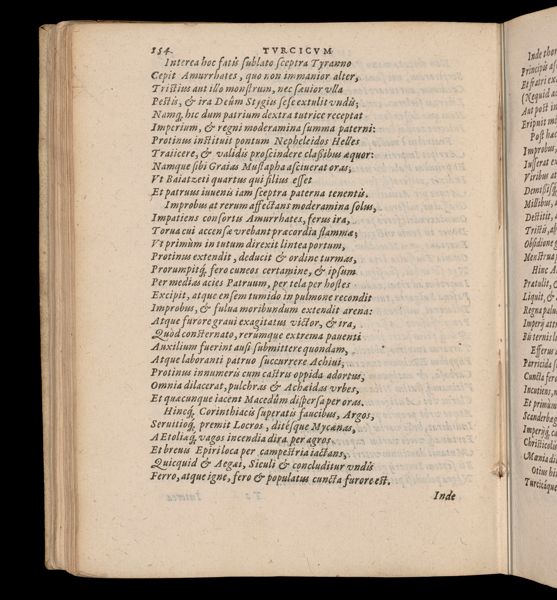 154. TVRCICVM
Interea hoc fatis sublato sceptra Tyranno
Cepit Amurrhates, quo non immanior alter,
Tristius aut illo monstrum, nec sæuior vlla
Pestis, & ira Deûm Stygiis sese extulit vndis;
Namq; hic dum patrium dextra tutrice receptat
Imperium, & regni moderamina summa paterni:
Protinus instituit pontum Nepheleidos Helles
Traiicere, & validis proscindere classibus æquor:
Namque sibi Graias Mustapha asciuerat oras,
Vt Baiatzeti quartus qui filius esset
Et patruus iuuenis iam sceptra paterna tenentis.
Improbus at rerum affectans moderamina solus,
Impatiens consortis Amurrhates, ferus ira,
Torua cui accensæ vrebant præcordia flammæ;
Vt primùm in tutum direxit lintea portum,
Protinus extendit, deducit & ordine turmas,
Prorumpitq; fero cuneos certamine, & ipsum
Per medias acies Patruum, per tela per hostes
Excipit, atque ensem tumido in pulmone recondit
Improbus, & fulua moribundum extendit arena:
Atque furore graui exagitatus victor, & ira,
Quòd consternato, rerumque extrema pauenti
Auxilium fuerint ausi submittere quondam,
Atque laboranti patruo succurrere Achiui,
Protinus innumeris cum castris oppida adortus,
Omnia dilacerat, pulchras & Achæidas vrbes,
Et quacunque iacent Macedûm dispersa per oras.
Hincq; Corinthiacis superatis faucibus, Argos,
Seruitioq; premit Locros, ditésque Mycænas,
AEtoliaq; vagos incendia dira per agros,
Et breuis Epiri loca per campestria iactans,
Quicquid & Aegai, Siculi & concluditur vndis
Ferro, atque igne, fero & populatus cuncta furore est.
Inde
Inde
Principis
Et fratri
(Nequid
Aut post in
Eripuit
Post
Improbus,
Iusserat
Viribus
Millibus,
Tristis,
Obsidione
Hinc
Pratulit,
Liquit,
Regna
Imperij
Efferus
Parricida
Cuncta
Incutiens,
Et primùm
Scanderbag
Imperijq;
Christicol
Mænia
Otius